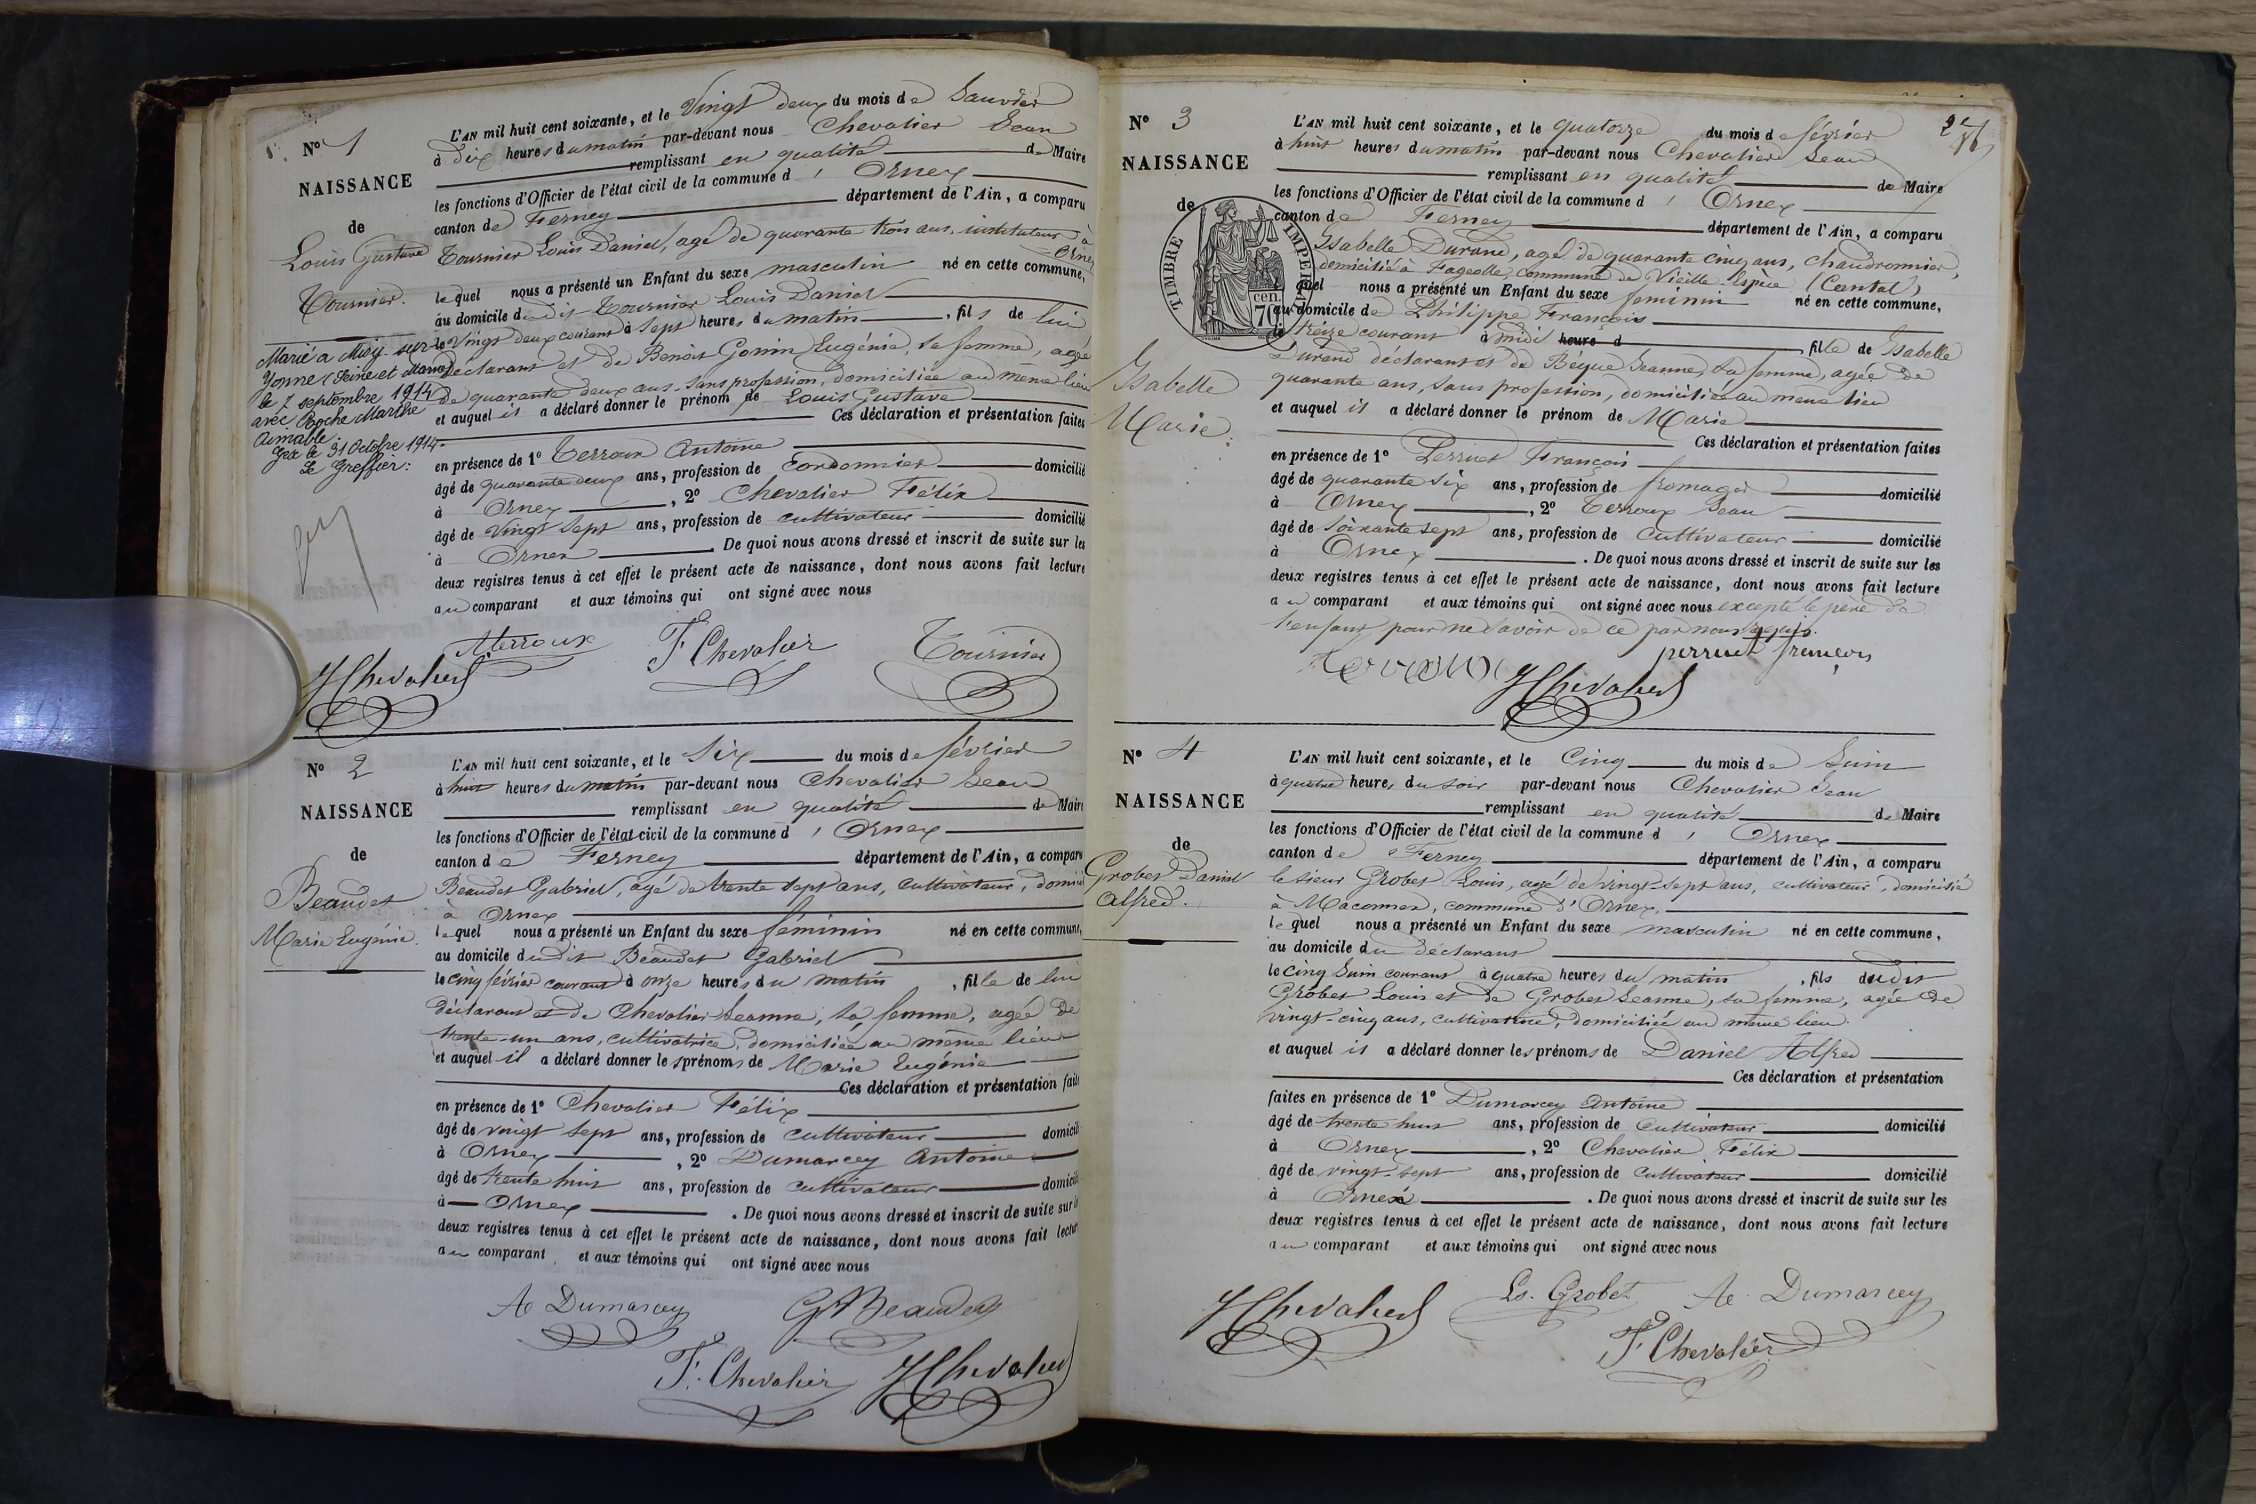 N° 1
NAISSANCE
de
Louis Gustave
Tournier.
Marié à Misy-sur-
Yonne (Seine et Marne)
le 7 septembre 1914
avec Poche Marthe
Aimable.
Gex le 31 Octobre 1914.
Le Greffier:
L'AN mil huit cent soixante, et le Vingt deux du mois de Janvier
à dix heures du matin par-devant nous Chevalier Jean
remplissant en qualité de Maire
les fonctions d'Officier de l'état civil de la commune d' Ornex
canton de Ferney département de l'Ain, a comparu
Tournier Louis Daniel, agé de quarante trois ans, instituteur à
Ornex
lequel nous a présenté un Enfant du sexe masculin né en cette commune,
au domicile dudit Tournier Louis Daniel
le Vingt deux courant à sept heures du matin, fils de lui
déclarant et de Benoit Gonin Eugénie, sa femme, agée
de quarante deux ans, sans profession, domiciliée au même lieu
et auquel il a déclaré donner le prénom de Louis Gustave
Ces déclaration et présentation faites
en présence de 1° Terroux Antoine
âgé de quarante deux ans, profession de Cordonnier domicilié
à Ornex, 2° Chevalier Félix
âgé de vingt sept ans, profession de cultivateur domicilié
à Ornex. De quoi nous avons dressé et inscrit de suite sur les
deux registres tenus à cet effet le présent acte de naissance, dont nous avons fait lecture
au comparant et aux témoins qui ont signé avec nous
A Terroux F. Chevalier Tournier
J Chevalier
N° 2
NAISSANCE
de
Beaudet
Marie Eugénie.
L'AN mil huit cent soixante, et le Six du mois de février
à huit heures du matin par-devant nous Chevalier Jean
remplissant en qualité de Maire
les fonctions d'Officier de l'état civil de la commune d' Ornex
canton de Ferney département de l'Ain, a comparu
Beaudet Gabriel, agé de trente sept ans, cultivateur, domicilié
à Ornex
lequel nous a présenté un Enfant du sexe féminin né en cette commune,
au domicile dudit Beaudet Gabriel
le cinq février courant à onze heures du matin, fille de lui
déclarant et de Chevalier Jeanne, sa femme, agée de
trente-un ans, cultivatrice, domiciliée au même lieu
et auquel il a déclaré donner les prénoms de Marie Eugénie
Ces déclaration et présentation faites
en présence de 1° Chevalier Félix
âgé de vingt sept ans, profession de cultivateur domicilié
à Ornex, 2° Dumarcey Antoine
âgé de trente huit ans, profession de cultivateur domicilié
à Ornex. De quoi nous avons dressé et inscrit de suite sur les
deux registres tenus à cet effet le présent acte de naissance, dont nous avons fait lecture
au comparant et aux témoins qui ont signé avec nous
Ae Dumarcey G Beaudet
F. Chevalier J Chevalier
N° 3
NAISSANCE
de
Isabelle
Marie.
TIMBRE IMPERIAL
70 cen.
L'AN mil huit cent soixante, et le quatorze du mois de février
à huit heures du matin par-devant nous Chevalier Jean
remplissant en qualité de Maire
les fonctions d'Officier de l'état civil de la commune d' Ornex
canton de Ferney département de l'Ain, a comparu
Isabelle Durand, agé de quarante cinq ans, chaudronnier,
domicilié à Fageolle, commune de Vieille-Espèce (Cantal)
lequel nous a présenté un Enfant du sexe féminin né en cette commune,
au domicile de Philippe François
le treize courant à midi heure d, fille de Isabelle
Durand déclarant et de Béque Jeanne, sa femme, agée de
quarante ans, sans profession, domiciliée au même lieu
et auquel il a déclaré donner le prénom de Marie
Ces déclaration et présentation faites
en présence de 1° Perruet François
âgé de quarante six ans, profession de fromager domicilié
à Ornex, 2° Terroux Jean
âgé de soixante sept ans, profession de cultivateur domicilié
à Ornex. De quoi nous avons dressé et inscrit de suite sur les
deux registres tenus à cet effet le présent acte de naissance, dont nous avons fait lecture
au comparant et aux témoins qui ont signé avec nous excepté le père de
l'enfant pour ne savoir de ce par nous requis.
Terroux J Chevalier perruet françois
N° 4
NAISSANCE
de
Grobet Daniel
Alfred.
L'AN mil huit cent soixante, et le Cinq du mois de Juin
à quatre heures du soir par-devant nous Chevalier Jean
remplissant en qualité de Maire
les fonctions d'Officier de l'état civil de la commune d' Ornex
canton de Ferney département de l'Ain, a comparu
le sieur Grobet Louis, agé de vingt-sept ans, cultivateur, domicilié
à Maconnex, commune d'Ornex,
lequel nous a présenté un Enfant du sexe masculin né en cette commune,
au domicile du déclarant
le cinq Juin courant à quatre heures du matin, fils dudit
Grobet Louis et de Grobet Jeanne, sa femme, agée de
vingt-cinq ans, cultivatrice, domiciliée au même lieu.
et auquel il a déclaré donner les prénoms de Daniel Alfred
Ces déclaration et présentation
faites en présence de 1° Dumarcey Antoine
âgé de trente huit ans, profession de cultivateur domicilié
à Ornex, 2° Chevalier Félix
âgé de vingt-sept ans, profession de cultivateur domicilié
à Ornex. De quoi nous avons dressé et inscrit de suite sur les
deux registres tenus à cet effet le présent acte de naissance, dont nous avons fait lecture
au comparant et aux témoins qui ont signé avec nous
J Chevalier Ls. Grobet Ae Dumarcey
F. Chevalier